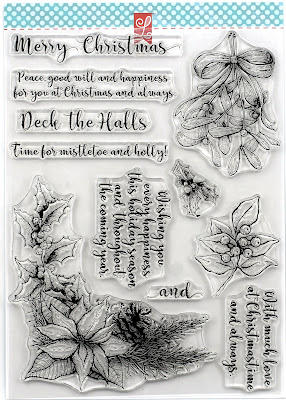 L
Merry Christmas
Peace, good will and happiness
for you at Christmas and always.
Deck the Halls
Time for mistletoe and holly!
Wishing you
every happiness
this holiday season
and throughout
the coming year.
and
With much love
at Christmastime
and always.